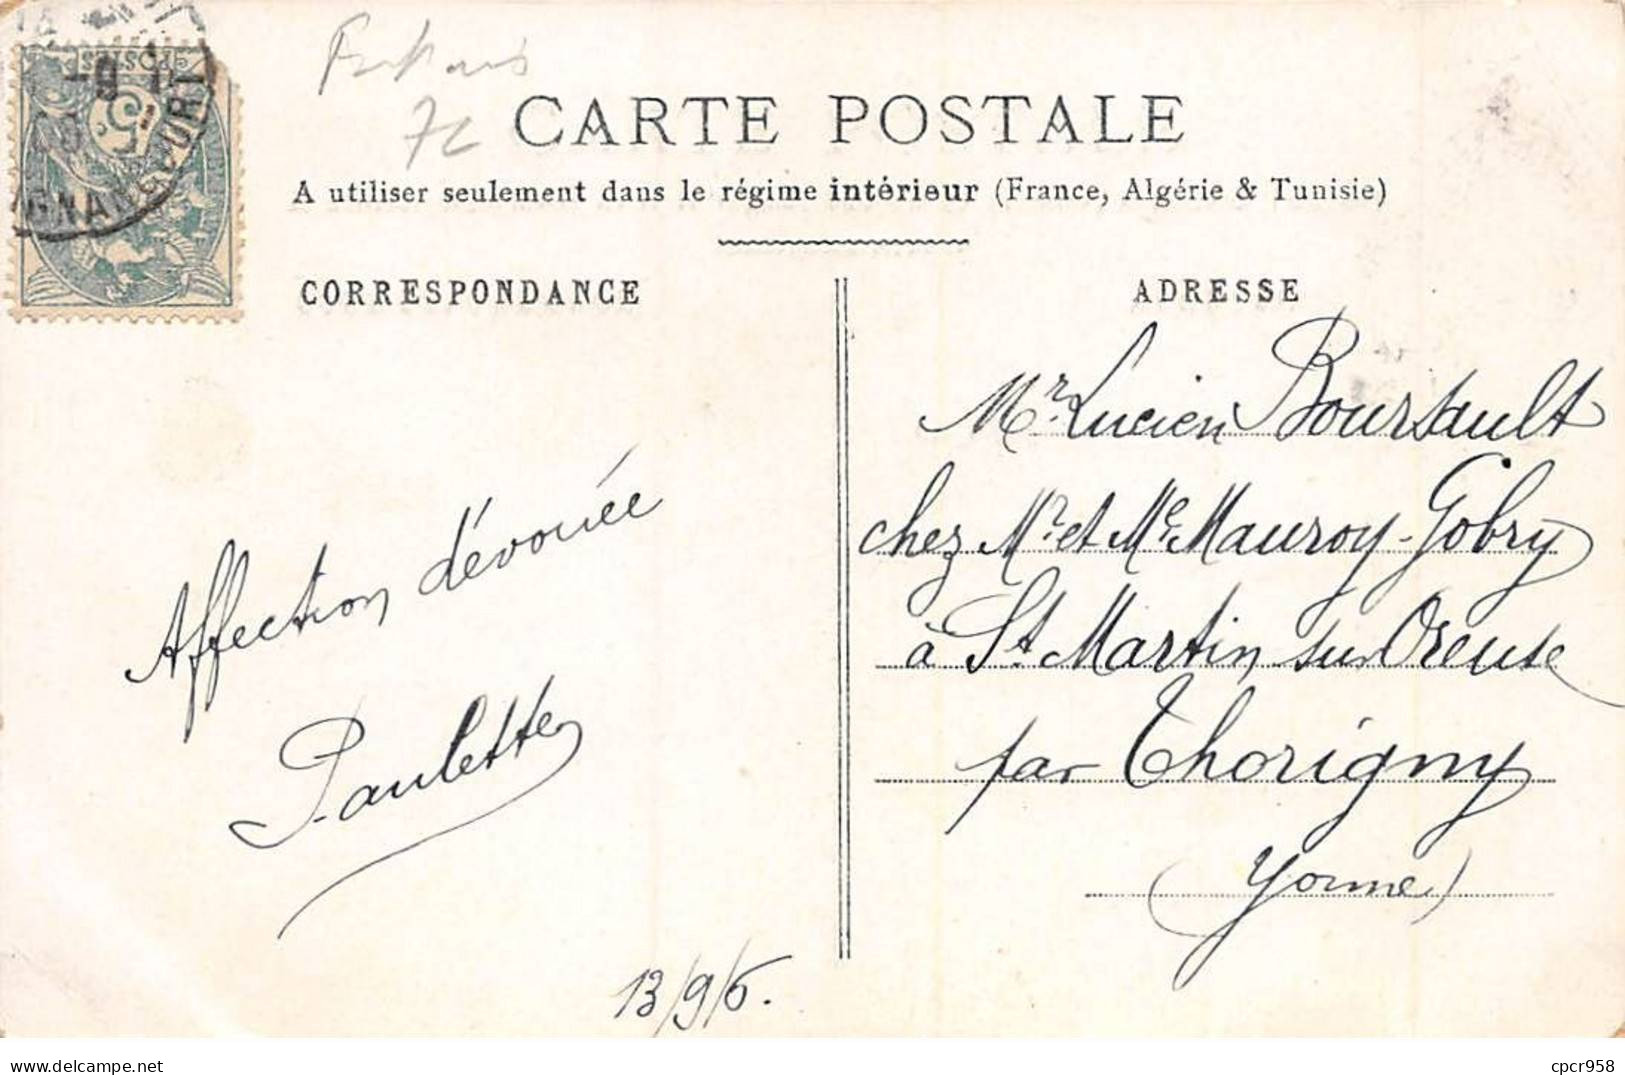 POSTES
5c
GNANCOURT
72
CARTE POSTALE
A utiliser seulement dans le régime intérieur (France, Algérie & Tunisie)
CORRESPONDANCE
Affection dévouée
Paulette
13/9/6.
ADRESSE
Mr. Lucien Boursault
chez Mr. et Me. Mauroy-Gobry
à St. Martin sur Oreuse
par Thorigny
(Yonne)
cpcr958